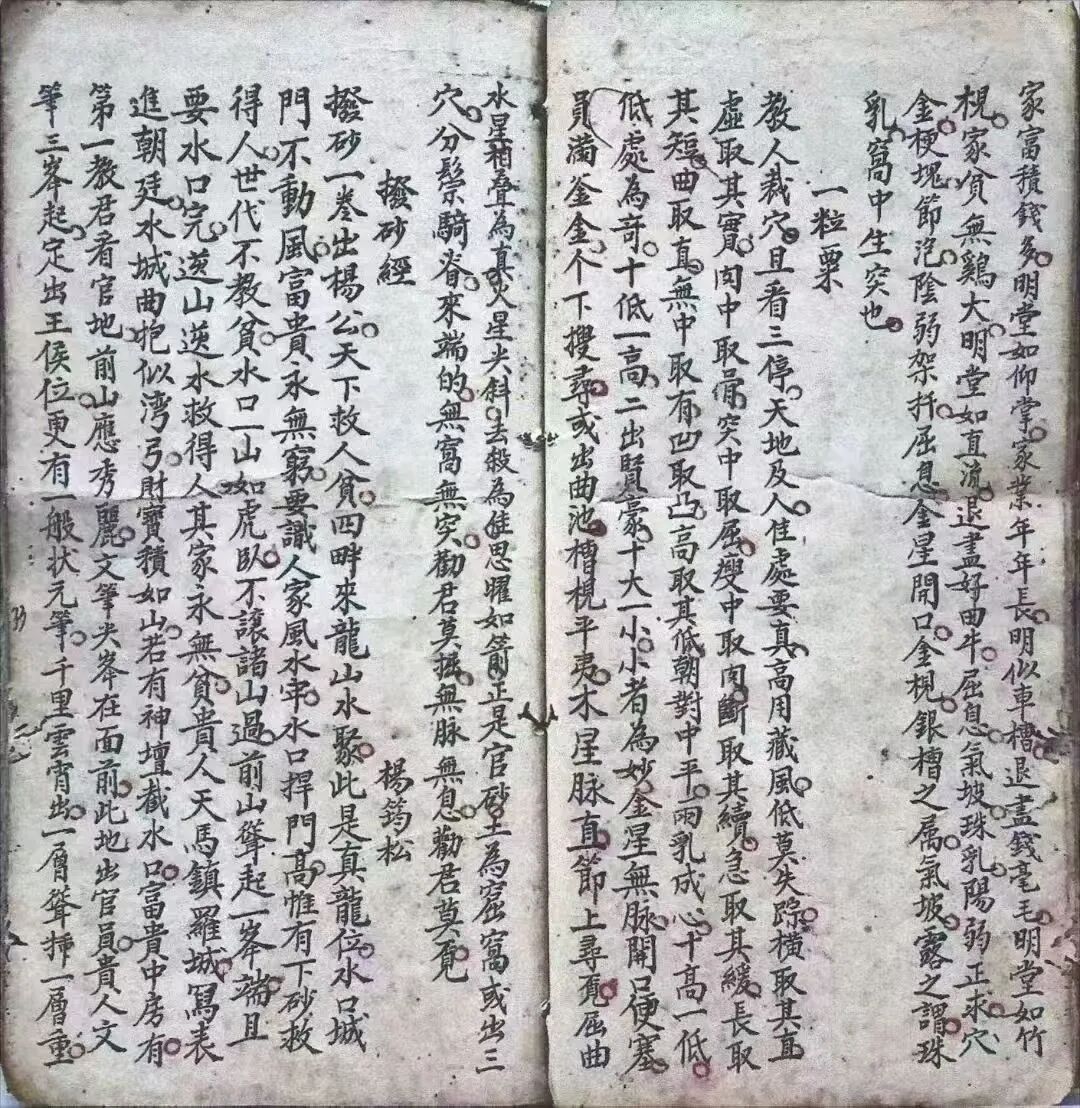 家富積錢多明堂如仰掌家業年年長明似車槽退盡錢毫毛明堂如竹
梘家貧無鷄犬明堂如直流退盡好曲牛屈息氣坡珠乳陽弱正求穴
金梗塊節泡陰弱架扦屈息金星開口金梘銀槽之属氣坡露之謂珠
乳窩中生突也
一粒粟
教人裁穴且看三停天地及人佳處要真高用藏風低莫失踪橫取其直
虛取其實肉中取骨突中取屈瘦中取肉斷取其續急取其緩長取
其短曲取直無中取有凹取凸高取其低朝對中平兩乳成心十高一低
低處為奇十低一高二出賢豪十大一小小者為妙金星無脉開口便塞
員滿釜金个下搜尋或出曲池槽梘平夷木星脉直節上尋覔屈曲
水星相叠為真火星尖斜去殺為佳思曜如箭正是官砂土為窟窩或出三
穴分鬃騎脊來端的無窩無突勸君莫扳無脉無息勸君莫覔
撥砂經
楊筠松
撥砂一卷出楊公天下救人貧四畔來龍山水聚此是真龍位水口城
門不動風富貴永無窮要識人家風水牢水口捍門高惟有下砂救
得人世代不教貧水口一山如虎臥不讓諸山過前山聳起一峯端且
要水口完逆山逆水救得人其家永無貧貴人天馬鎮羅城冩表
進朝廷水城曲抱似湾弓財寶積如山若有神壇截水口富貴中房有
第一教君看官地前山應秀麗文筆尖峯在面前此地出官員貴人文
筆三峯起定出王侯位更有一般状元筆千里雲霄出一層聳揷一層重